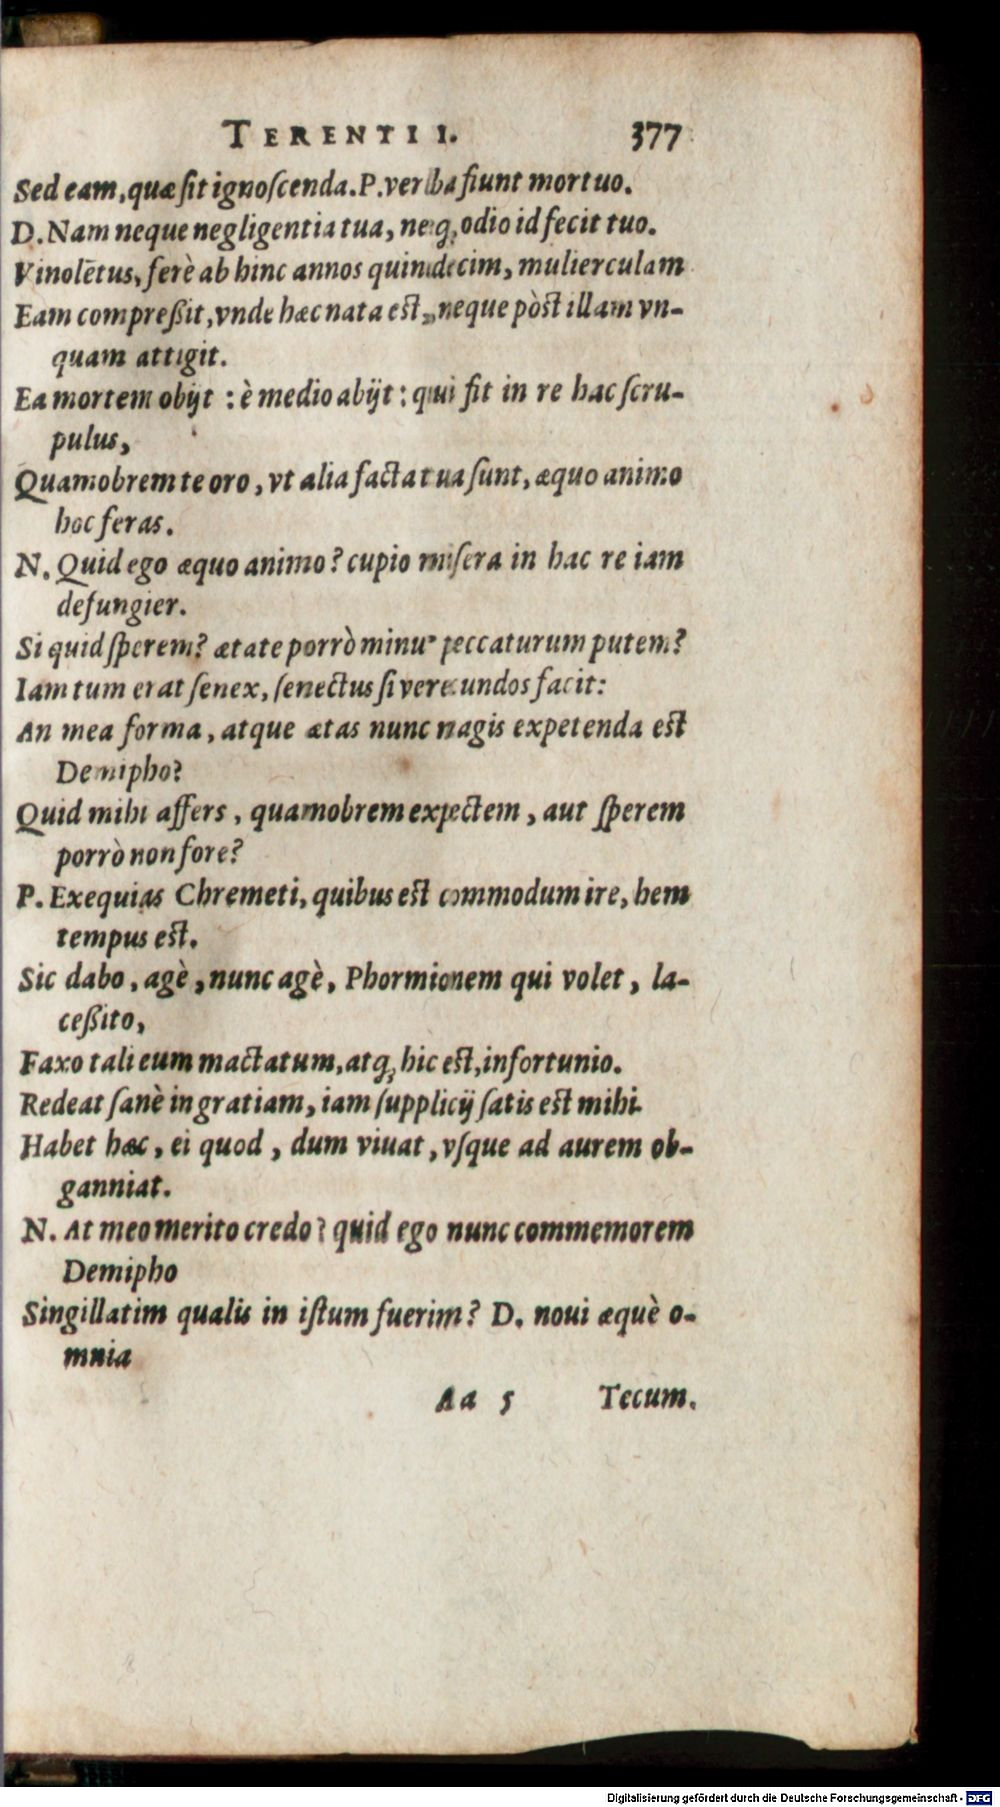 TERENTII I. 377
Sed eam, quæ ſit ignoſcenda. P. verba fiunt mortuo.
D. Nam neque negligentia tua, neq; odio id fecit tuo.
Vinolētus, ferè ab hinc annos quindecim, mulierculam
Eam compreßit, vnde hæc nata eſt, neque pòſt illam vn-
quam attigit.
Ea mortem obijt : è medio abijt : qui fit in re hac ſcru-
pulus,
Quamobrem te oro, vt alia facta tua ſunt, æquo animo
hoc feras.
N. Quid ego æquo animo? cupio miſera in hac re iam
defungier.
Si quid ſperem? ætate porrò minus peccaturum putem?
Iam tum erat ſenex, ſenectus ſi verecundos facit:
An mea forma, atque ætas nunc magis expetenda eſt
Demipho?
Quid mihi affers, quamobrem expectem, aut ſperem
porrò non fore?
P. Exequias Chremeti, quibus eſt commodum ire, hem
tempus eſt.
Sic dabo, agè, nunc agè, Phormionem qui volet, la-
ceßito,
Faxo tali eum mactatum, atq; hic eſt, infortunio.
Redeat ſanè in gratiam, iam ſupplicij ſatis eſt mihi.
Habet hæc, ei quod, dum viuat, vſque ad aurem ob-
ganniat.
N. At meo merito credo? quid ego nunc commemorem
Demipho
Singillatim qualis in iſtum fuerim? D. noui æquè o-
mnia
Aa 5 Tecum.
Digitalisierung gefördert durch die Deutsche Forschungsgemeinschaft - DFG